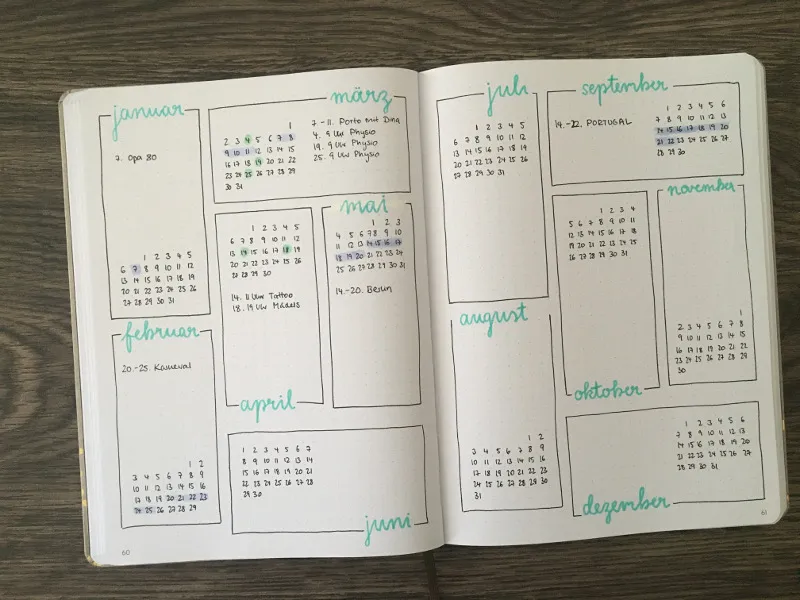 januar
7. Opa 80
1 2 3 4 5
6 7 8 9 10 11 12
13 14 15 16 17 18 19
20 21 22 23 24 25 26
27 28 29 30 31
februar
20.-25. Karneval
1 2
3 4 5 6 7 8 9
10 11 12 13 14 15 16
17 18 19 20 21 22 23
24 25 26 27 28 29
märz
1
2 3 4 5 6 7 8
9 10 11 12 13 14 15
16 17 18 19 20 21 22
23 24 25 26 27 28 29
30 31
7.-11. Porto mit Dina
4. 9 Uhr Physio
19. 9 Uhr Physio
25. 9 Uhr Physio
1 2 3 4 5
6 7 8 9 10 11 12
13 14 15 16 17 18 19
20 21 22 23 24 25 26
27 28 29 30
14. 11 Uhr Tattoo
18. 19 Uhr Mädels
april
mai
1 2 3
4 5 6 7 8 9 10
11 12 13 14 15 16 17
18 19 20 21 22 23 24
25 26 27 28 29 30 31
14.-20. Berlin
1 2 3 4 5 6 7
8 9 10 11 12 13 14
15 16 17 18 19 20 21
22 23 24 25 26 27 28
29 30
juni
60
juli
1 2 3 4 5
6 7 8 9 10 11 12
13 14 15 16 17 18 19
20 21 22 23 24 25 26
27 28 29 30 31
august
1 2
3 4 5 6 7 8 9
10 11 12 13 14 15 16
17 18 19 20 21 22 23
24 25 26 27 28 29 30
31
september
14.-22. PORTUGAL
1 2 3 4 5 6
7 8 9 10 11 12 13
14 15 16 17 18 19 20
21 22 23 24 25 26 27
28 29 30
1 2 3 4
5 6 7 8 9 10 11
12 13 14 15 16 17 18
19 20 21 22 23 24 25
26 27 28 29 30 31
oktober
november
1
2 3 4 5 6 7 8
9 10 11 12 13 14 15
16 17 18 19 20 21 22
23 24 25 26 27 28 29
30
1 2 3 4 5 6
7 8 9 10 11 12 13
14 15 16 17 18 19 20
21 22 23 24 25 26 27
28 29 30 31
dezember
61